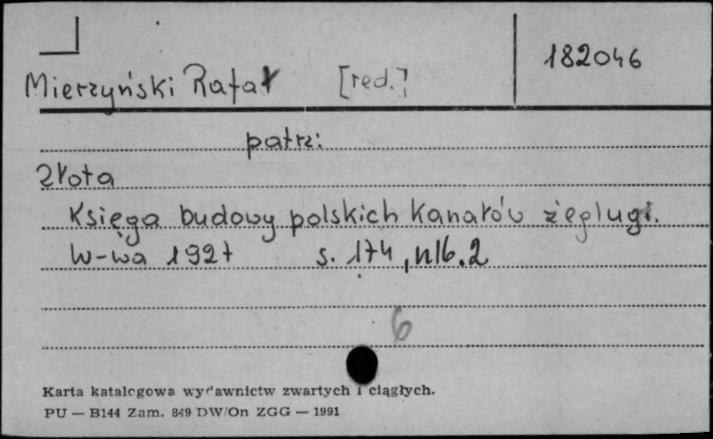 182046
Mierzyński Rafał [red.]
patrz:
Złota
Księga budowy polskich kanałów żeglugi.
W-wa 1927 s. 174, nlb. 2
6
Karta katalogowa wydawnictw zwartych i ciągłych.
PU — B144 Zam. 849 DW/On ZGG — 1991